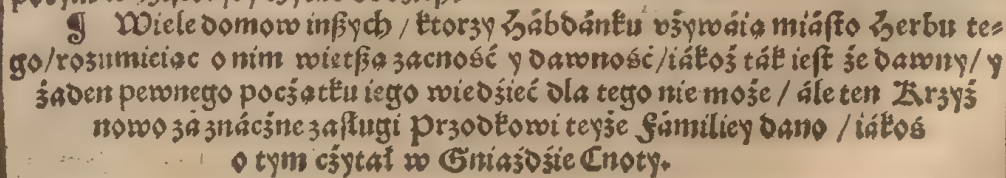 ¶ Wiele domow inßych / ktorzy Hábdánku vżywáią miáſto Herbu te⸗
go/rozumieiąc o nim wietßą zacność y dawność/iákoż ták ieſt że dawny/ y
żaden pewnego pocżątku iego wiedźieć dla tego nie może / ále ten Krzyż
nowo zá znácżne zaſługi Przodkowi teyże Fámiliey dano / iákoś
o tym cżytał w Gniaździe Cnoty.